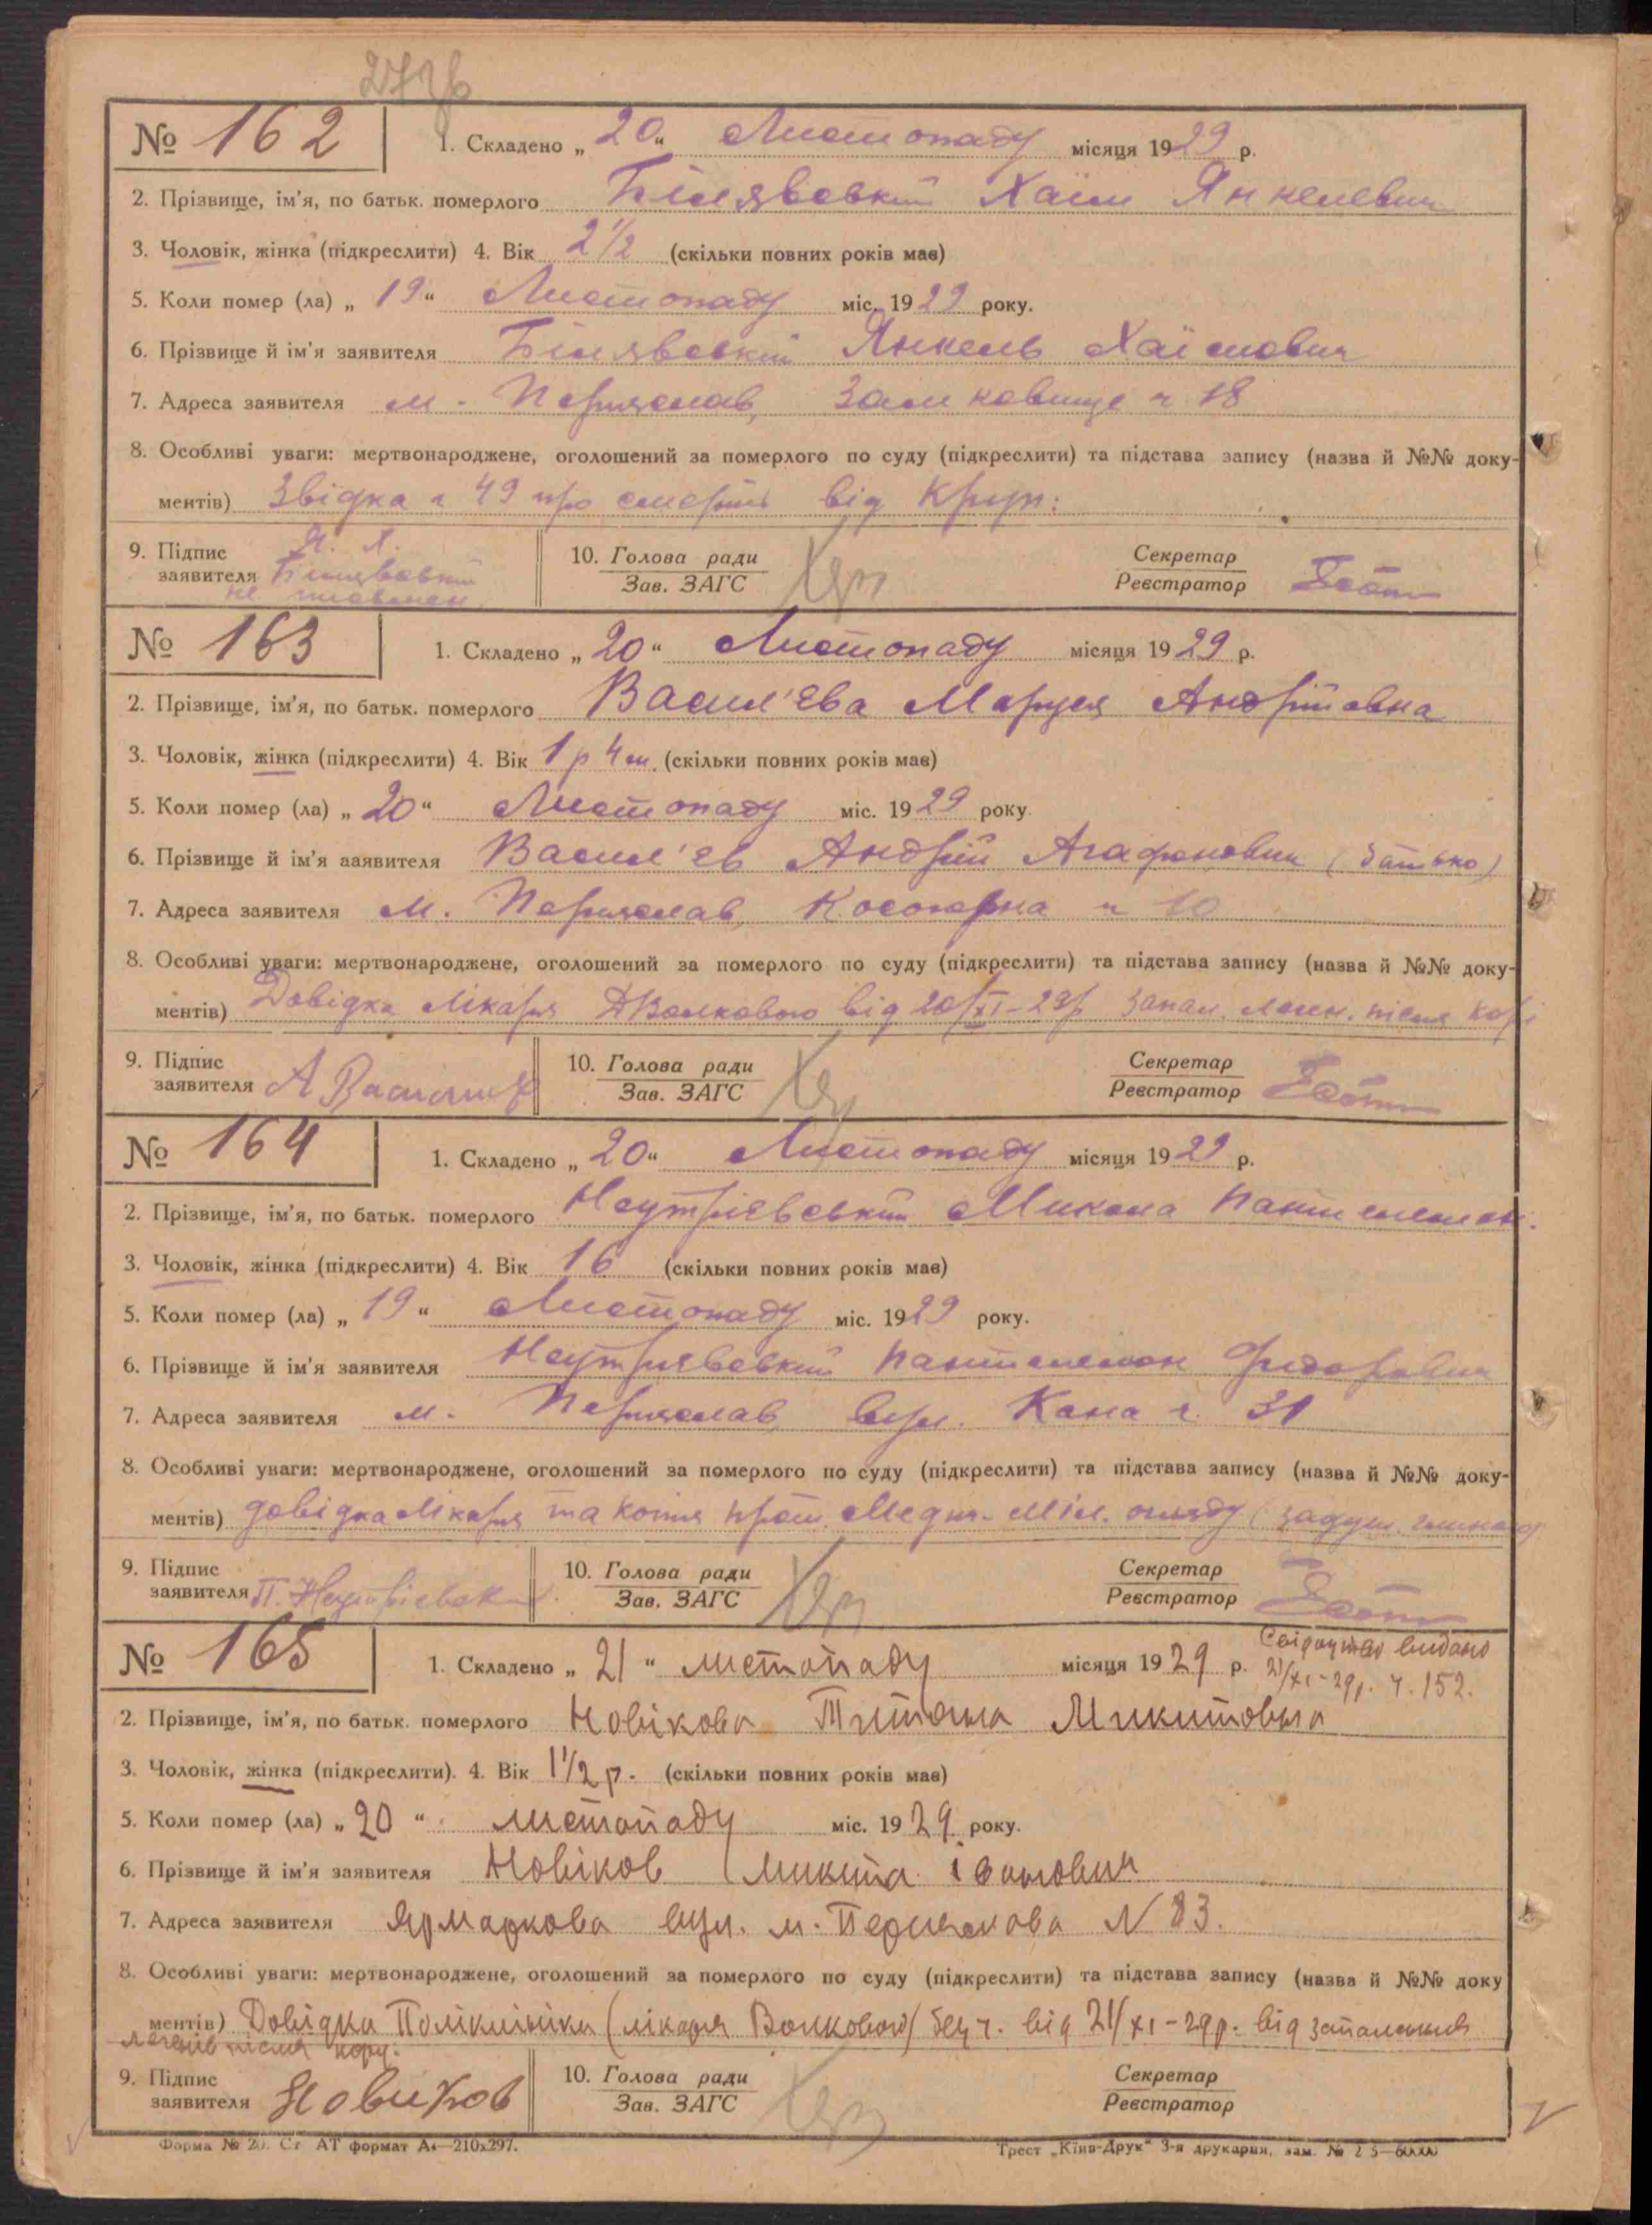 № 162
1. Складено „ 20 “ Листопаду місяця 1929 р.
2. Прізвище, ім'я, по батьк. померлого Білявський Хаїм Янкелевич
3. Чоловік, жінка (підкреслити) 4. Вік 2 1/2 (скільки повних років має)
5. Коли помер (ла) „ 19 “ Листопаду міс. 1929 року.
6. Прізвище й ім'я заявителя Білявський Янкель Хаїмович
7. Адреса заявителя м. Переяслав, Замковище ч 18
8. Особливі уваги: мертвонароджене, оголошений за померлого по суду (підкреслити) та підстава запису (назва й №№ доку-
ментів) Звідка ч 49 про смерть від Круп:
9. Підпис заявителя Я. Х. Білявський не письмен.
10. Голова ради
Зав. ЗАГС
Секретар
Реєстратор
№ 163
1. Складено „ 20 “ Листопаду місяця 1929 р.
2. Прізвище, ім'я, по батьк. померлого Васил'єва Маруся Андріївна
3. Чоловік, жінка (підкреслити) 4. Вік 1 р 4 м. (скільки повних років має)
5. Коли помер (ла) „ 20 “ Листопаду міс. 1929 року.
6. Прізвище й ім'я заявителя Васил'єв Андрій Агафонович (батько)
7. Адреса заявителя м. Переяслав, ч 10
8. Особливі уваги: мертвонароджене, оголошений за померлого по суду (підкреслити) та підстава запису (назва й №№ доку-
ментів) Довідка Лікаря Волкового від 20/XI-29р запал. леген. після корі
9. Підпис заявителя А Васильев
10. Голова ради
Зав. ЗАГС
Секретар
Реєстратор
№ 164
1. Складено „ 20 “ Листопаду місяця 1929 р.
2. Прізвище, ім'я, по батьк. померлого Неутрієвський Микола Пантелемон.
3. Чоловік, жінка (підкреслити) 4. Вік 16 (скільки повних років має)
5. Коли помер (ла) „ 19 “ Листопаду міс. 1929 року.
6. Прізвище й ім'я заявителя Неутрієвський Пантелемон Федорович
7. Адреса заявителя м. Переяслав вул. ч. 31
8. Особливі уваги: мертвонароджене, оголошений за померлого по суду (підкреслити) та підстава запису (назва й №№ доку-
ментів) довідка Лікаря та копія прот. Медич. Міл. огляду (задуш.
9. Підпис заявителя П. Неутрієвськ
10. Голова ради
Зав. ЗАГС
Секретар
Реєстратор
№ 165
1. Складено „ 21 “ листопаду місяця 1929 р.
Свідоцтво видано
21/XI-29р. ч. 152.
2. Прізвище, ім'я, по батьк. померлого Новікова Титяна Микитовна
3. Чоловік, жінка (підкреслити). 4. Вік 1 1/2 р. (скільки повних років має)
5. Коли помер (ла) „ 20 “ листопаду міс. 1929 року.
6. Прізвище й ім'я заявителя Новіков Микита Іванович
7. Адреса заявителя Ярмаркова вул. м. Переяслова N 83.
8. Особливі уваги: мертвонароджене, оголошений за померлого по суду (підкреслити) та підстава запису (назва й №№ доку
ментів) Довідка Поліклініки (лікаря Волкового) без ч. від 21/XI-29р. від запалення
легенів після кору.
9. Підпис заявителя Новиков
10. Голова ради
Зав. ЗАГС
Секретар
Реєстратор
Форма № 20. Ст АТ формат А4—210х297.
Трест „Київ-Друк“ 3-я друкарня, зам. №